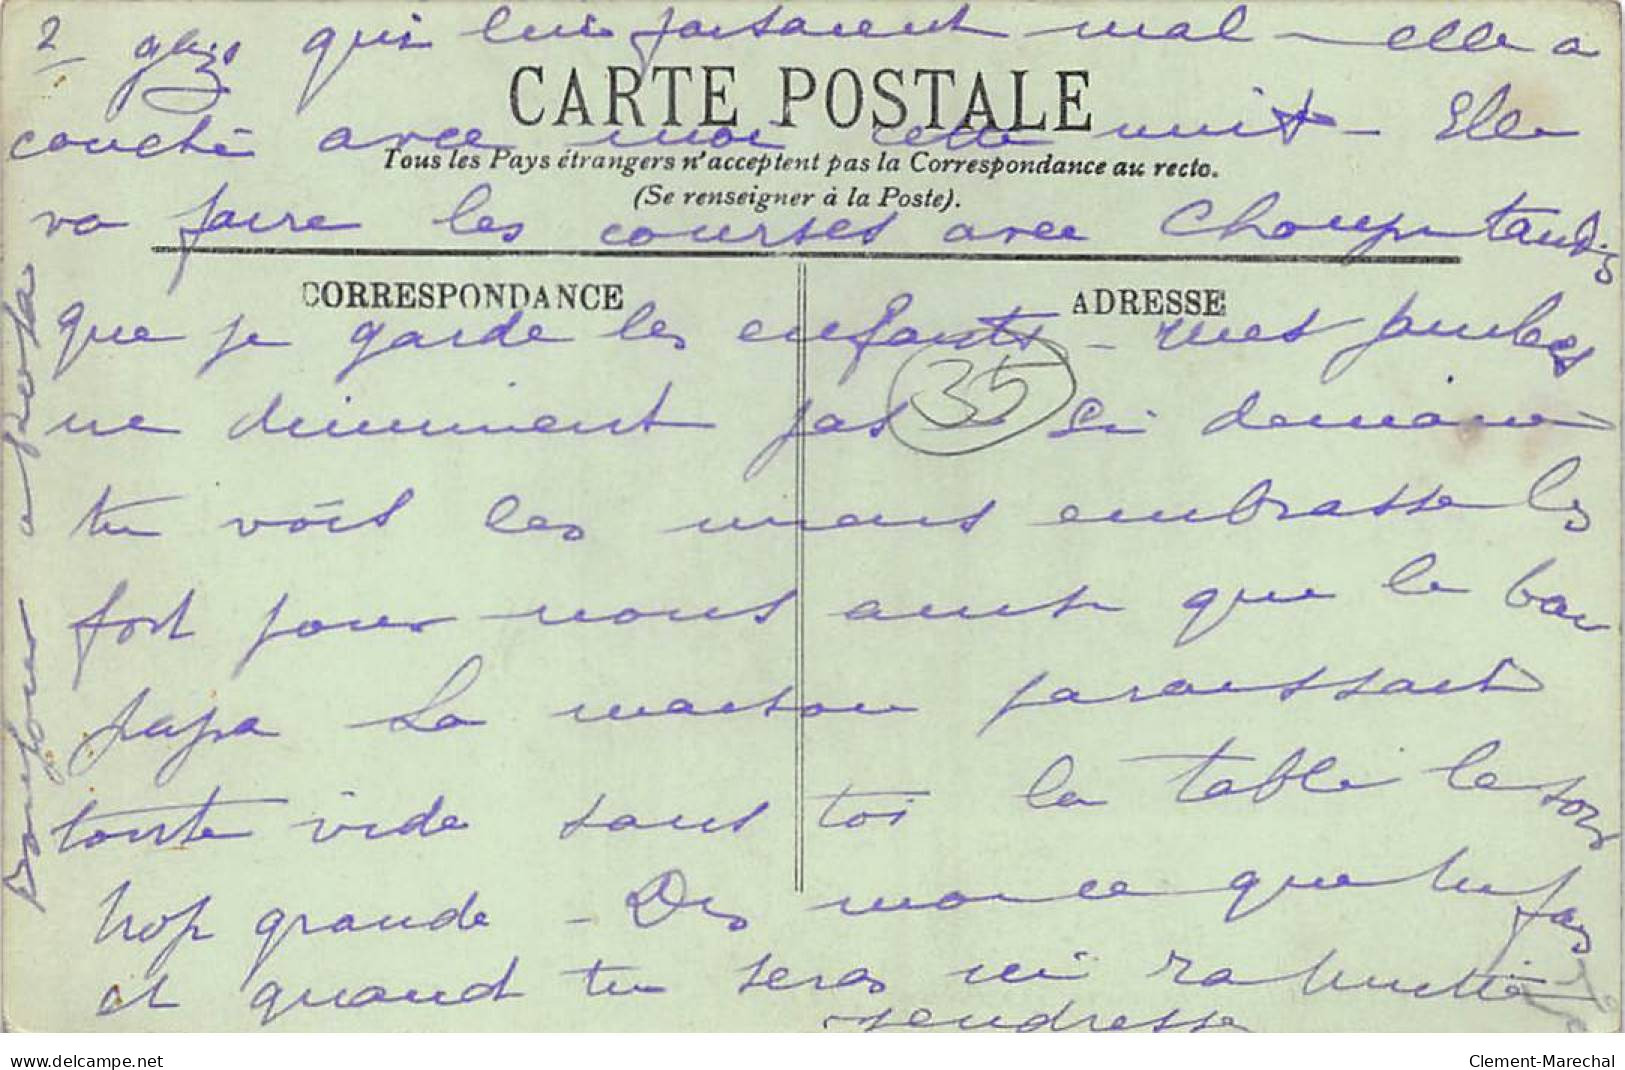 2 gazs qui lui faisaient mal – elle a
CARTE POSTALE
couché avec moi cette nuit – Elle
Tous les Pays étrangers n'acceptent pas la Correspondance au recto.
(Se renseigner à la Poste).
va faire les courses avec tandis
CORRESPONDANCE
ADRESSE
que je garde les enfants – mes jambes
35
ne diminuent pas – Si demain
tu vois les miens embrasse les
fort pour nous ainsi que le bon
papa La maison paraissait
toute vide sans toi la table le soir
trop grande – Dis moi ce que tu fais
et quand tu seras ici
tendresse
Bonjour a
delcampe.net
Clement-Marechal